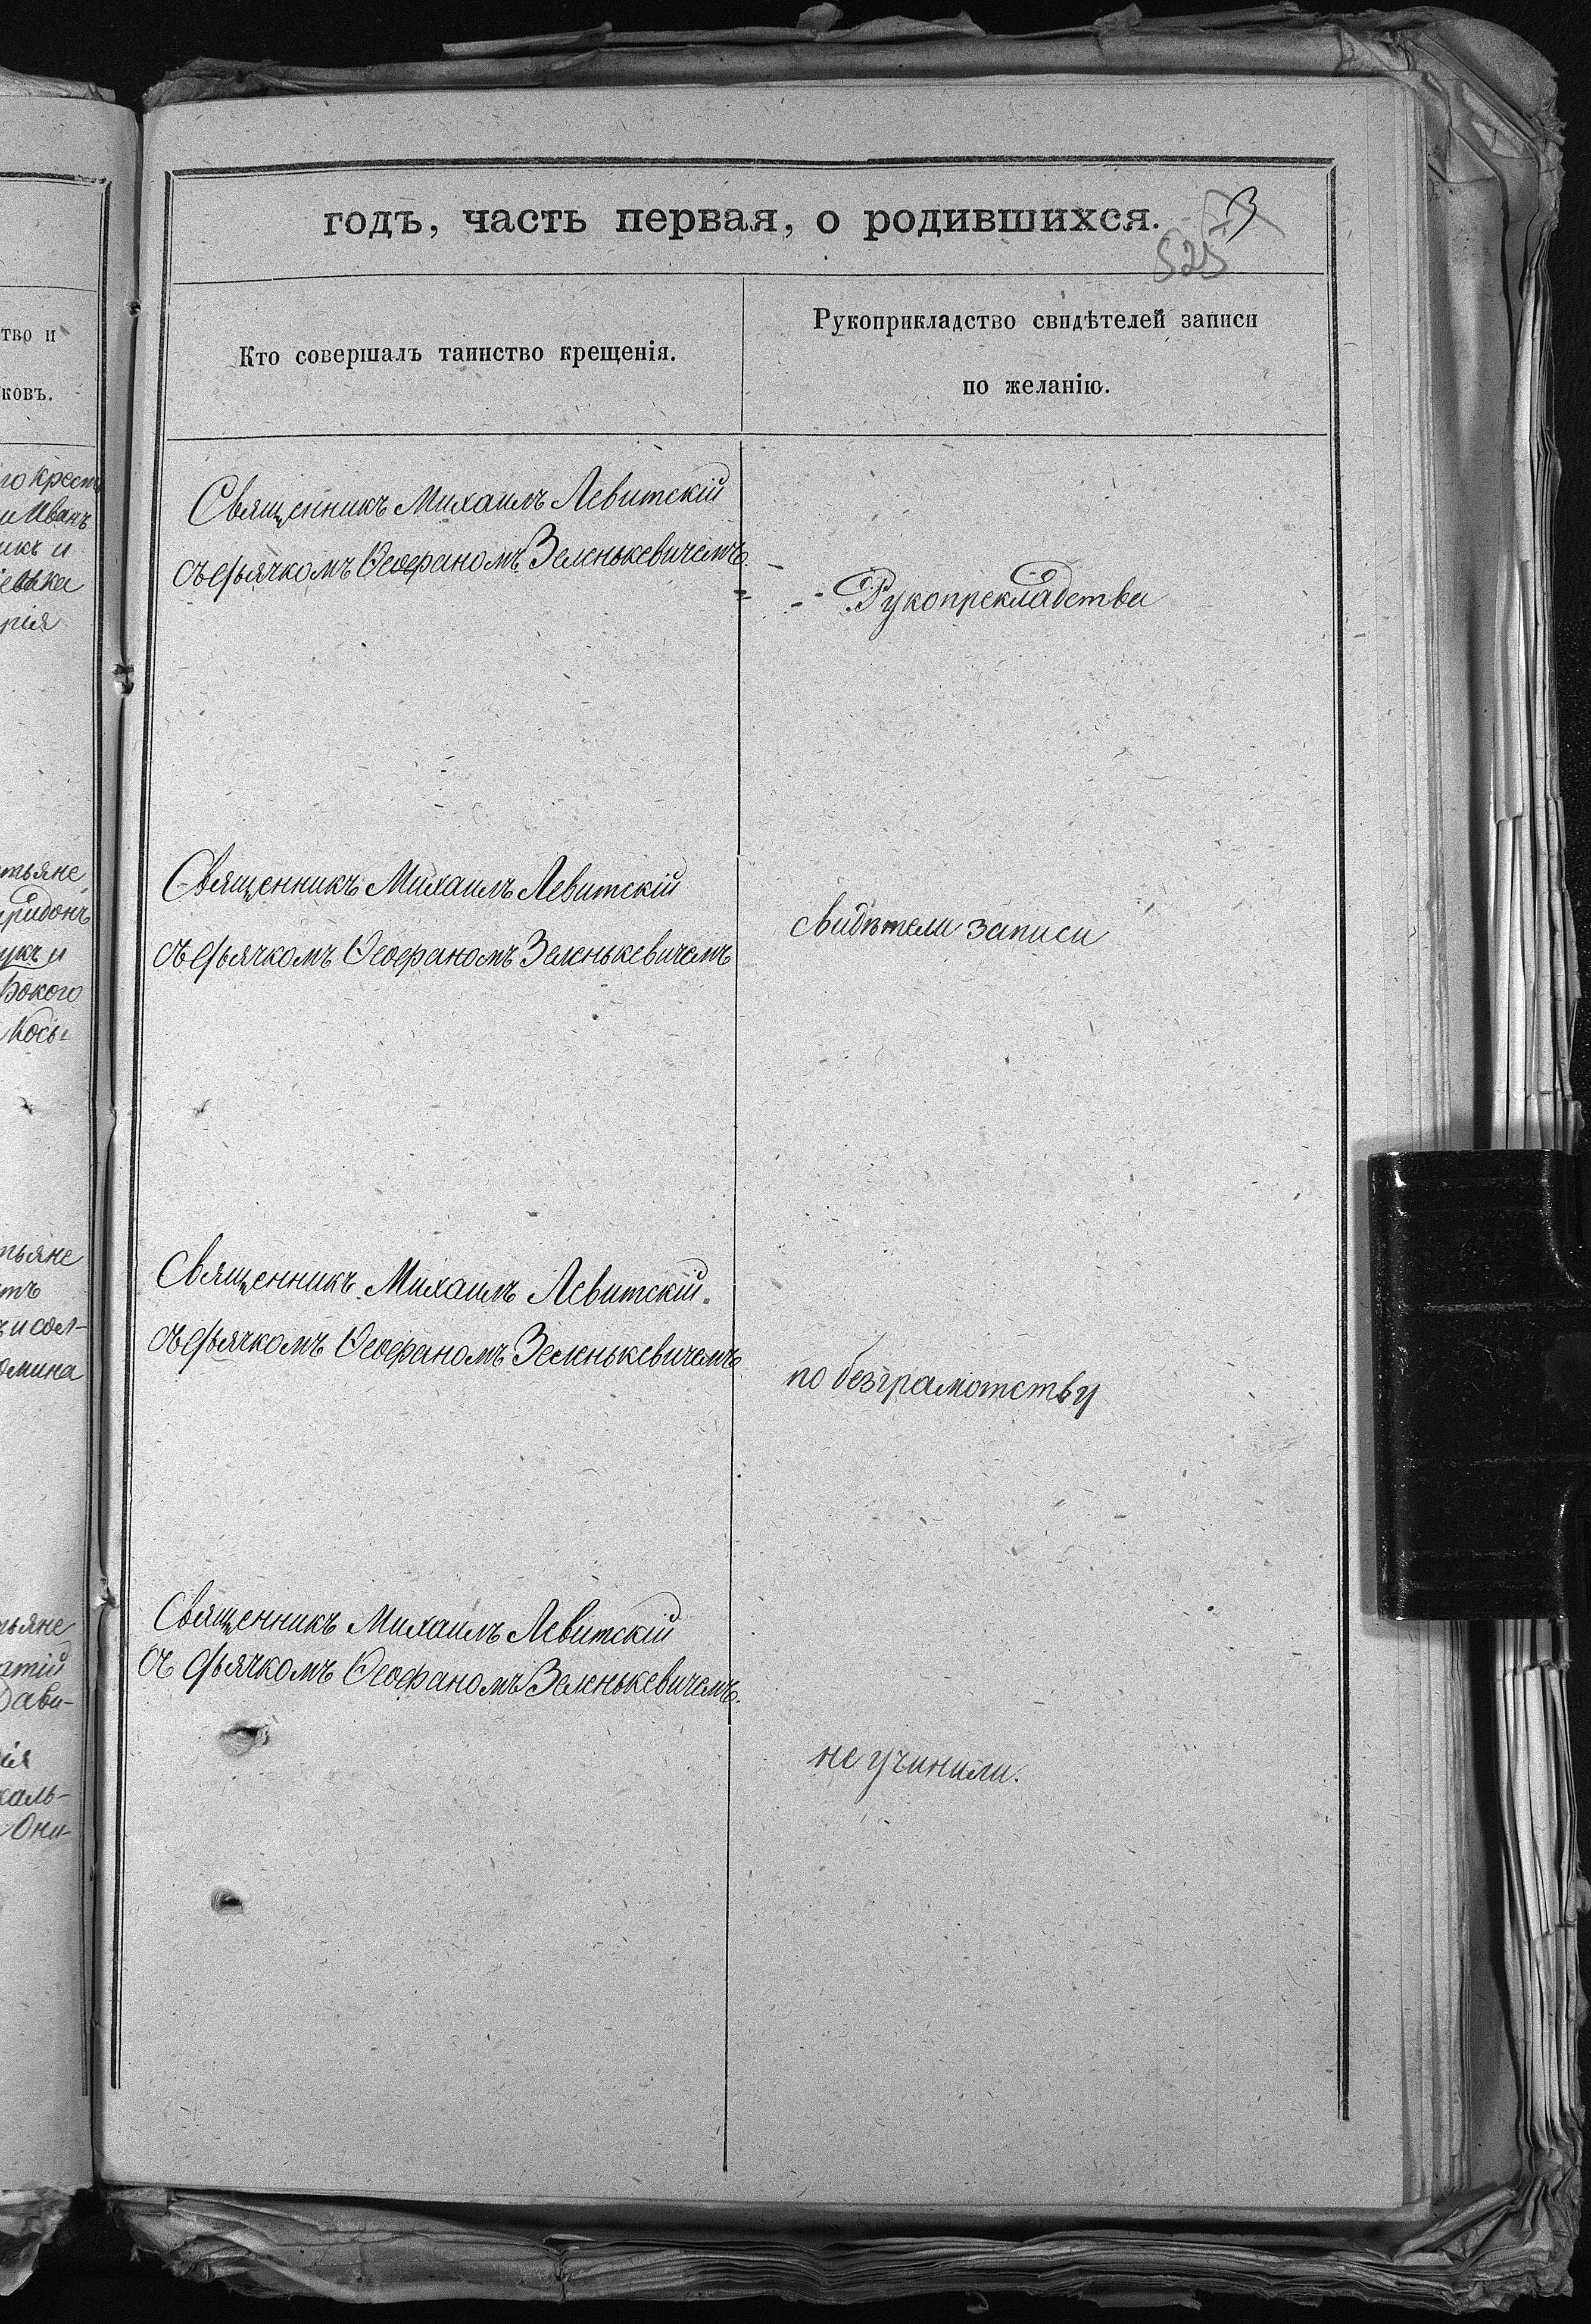 годъ, часть первая, о родившихся.
3
525
Кто совершалъ таинство крещенія.
Рукоприкладство свидѣтелей записи
по желанію.
Священникъ Михаилъ Левитскій
съ дьячкомъ Ѳеофаномъ Зеленькевичемъ.
Рукопрекладства
Священникъ Михаилъ Левитскій
съ дьячкомъ Ѳеофаномъ Зеленькевичемъ
свидѣтели записи
Священникъ Михаилъ Левитскій.
съ дьячкомъ Ѳеофаномъ Зеленькевичемъ
по безграмотству
Священникъ Михаилъ Левитскій
съ дьячкомъ Ѳеофаномъ Зеленькевичемъ.
не учинили.
тво и
ковъ.
го крест
и Иванъ
икъ и
евка
рія
тьяне
ридонъ
укъ и
бокого
Кось-
тьяне
тъ
ъ и сол-
омина
тьяне
атій
Дави-
ія
каль-
Они-